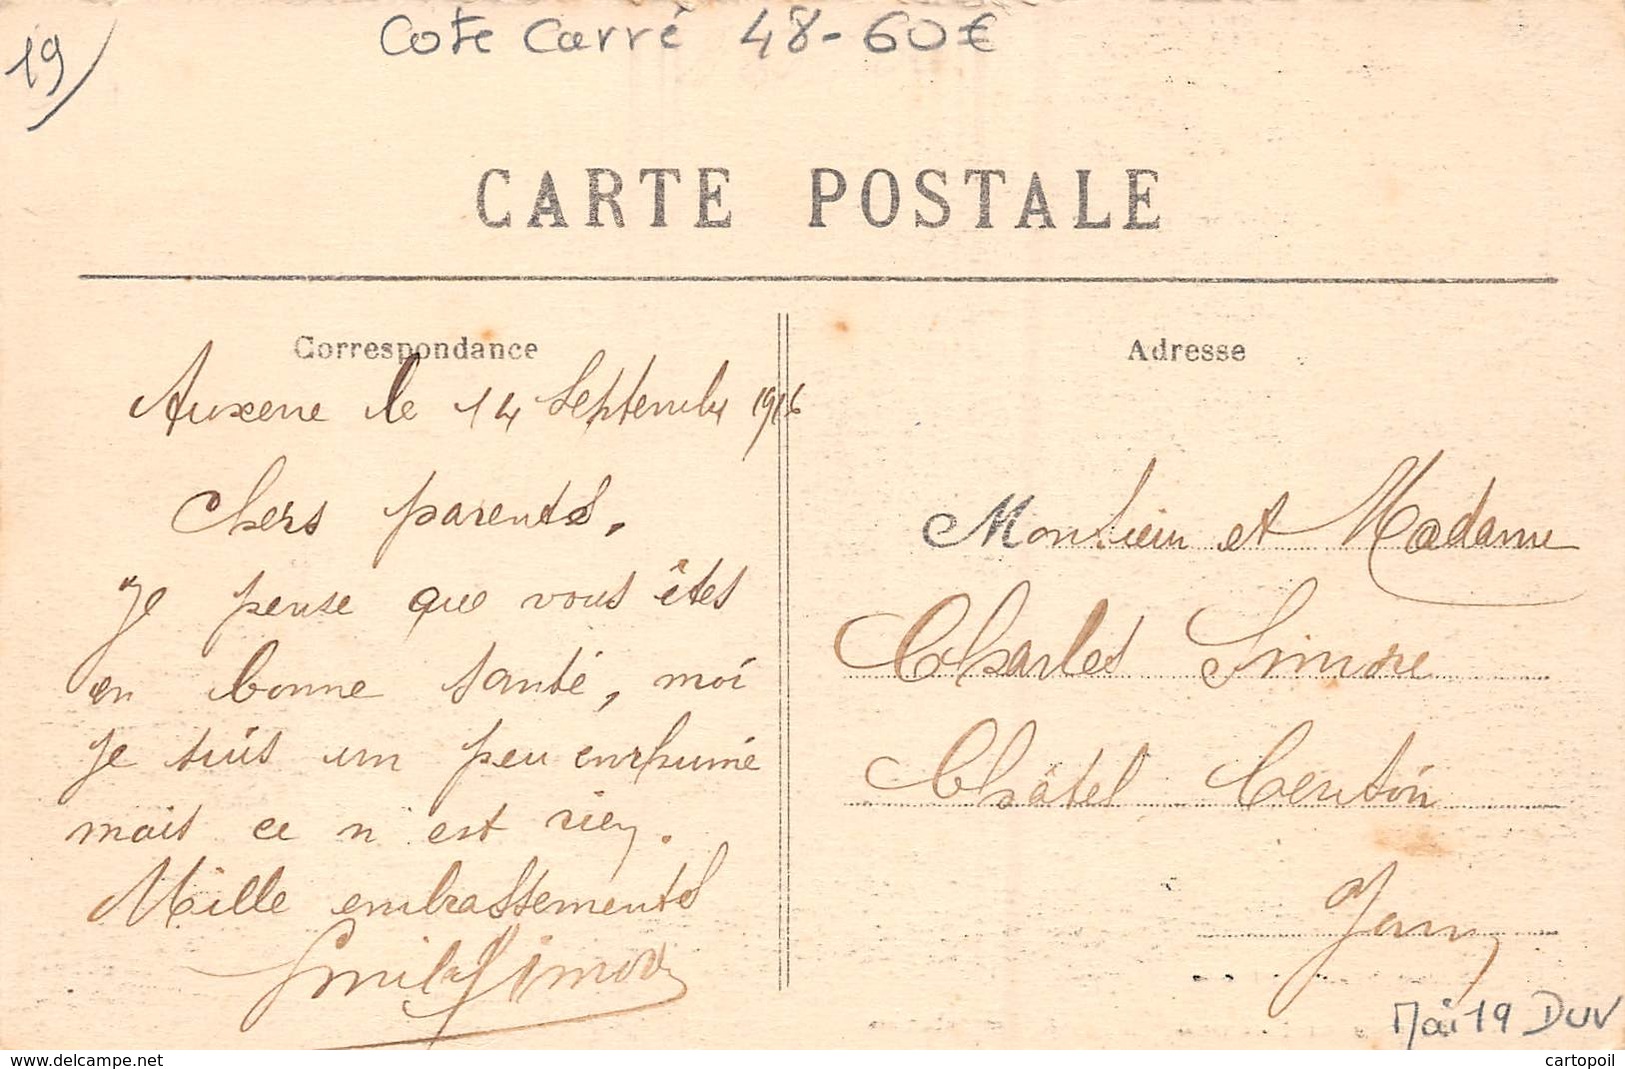 19
Cote Carré 48-60€
CARTE POSTALE
Correspondance
Auxerre le 14 Septembre 1916
Chers parents,
Je pense que vous êtes
en bonne santé, moi
je suis un peu enrhumé
mais ce n'est rien.
Mille embrassements
Emile Simon
Adresse
Monsieur et Madame
Charles Simon
Châtel Censoir
Yonne
Mai 19 DUV
www.delcampe.net
cartopoil